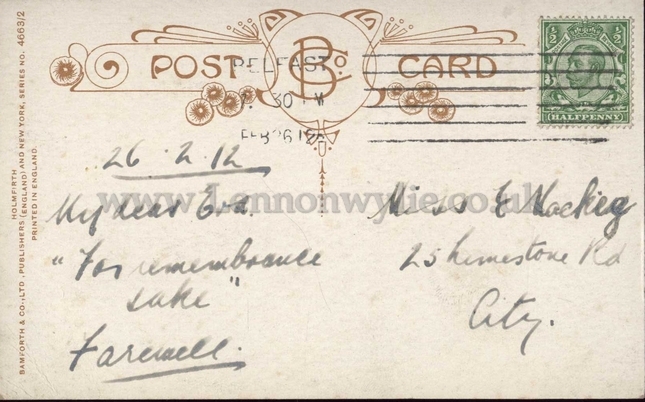 HOLMFIRTH
BAMFORTH & CO., LTD., PUBLISHERS (ENGLAND) AND NEW YORK, SERIES NO. 4663/2
PRINTED IN ENGLAND.
POST CARD
B Co.
BELFAST
30
FEB 26 12
1/2 1/2
HALFPENNY
www.Lennonwylie.co.uk
26.2.12
My dear Eva.
"For remembrance
sake"
Farewell.
Miss E Mackey
25 Limestone Rd
City.